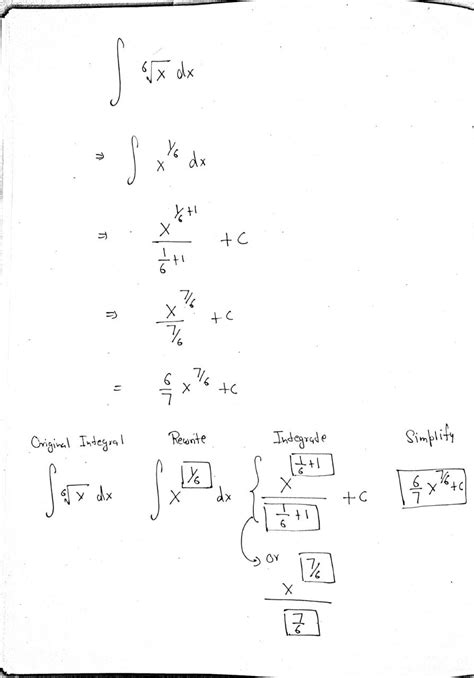 ∫ ⁶√x dx
⇒ ∫ x^(1/6) dx
⇒ x^(1/6 +1) / (1/6 +1) + C
⇒ x^(7/6) / (7/6) + C
= 6/7 x^(7/6) + C
Original Integral Rewrite Integrade Simplify
∫ ⁶√x dx ∫ x^(1/6) dx { x^(1/6 +1) / (1/6 +1) + C 6/7 x^(7/6) + C
or x^(7/6) / (7/6)